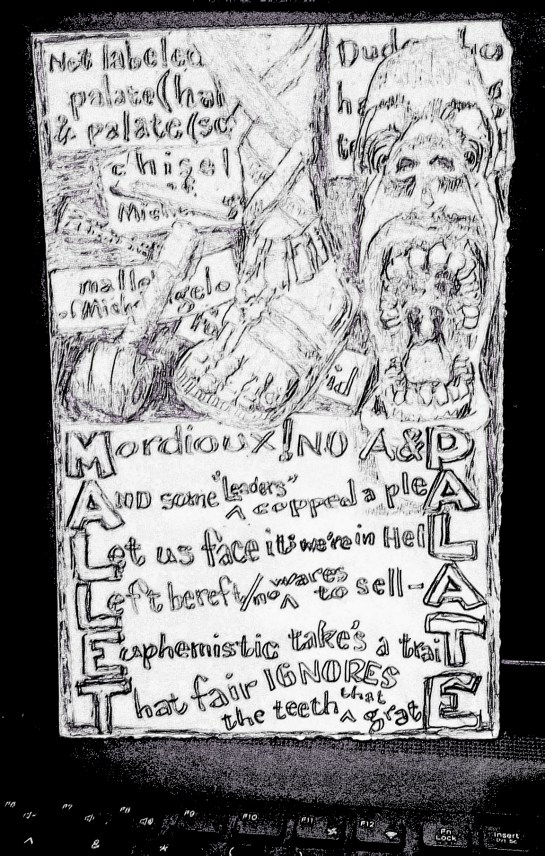 Not labeled
palate(hal
& palate(so
chisel
of
mallet
Mordioux! NO A&P
AND some "Leaders" copped a pleA
Let us face it: we're in HelL
Left bereft/no wares to sell-A
Euphemistic take's a traiT
That fair IGNORES
the teeth that gratE
F6 F7 F8 F9 F10 F11 F12 Fn Lock Insert
^ & * (